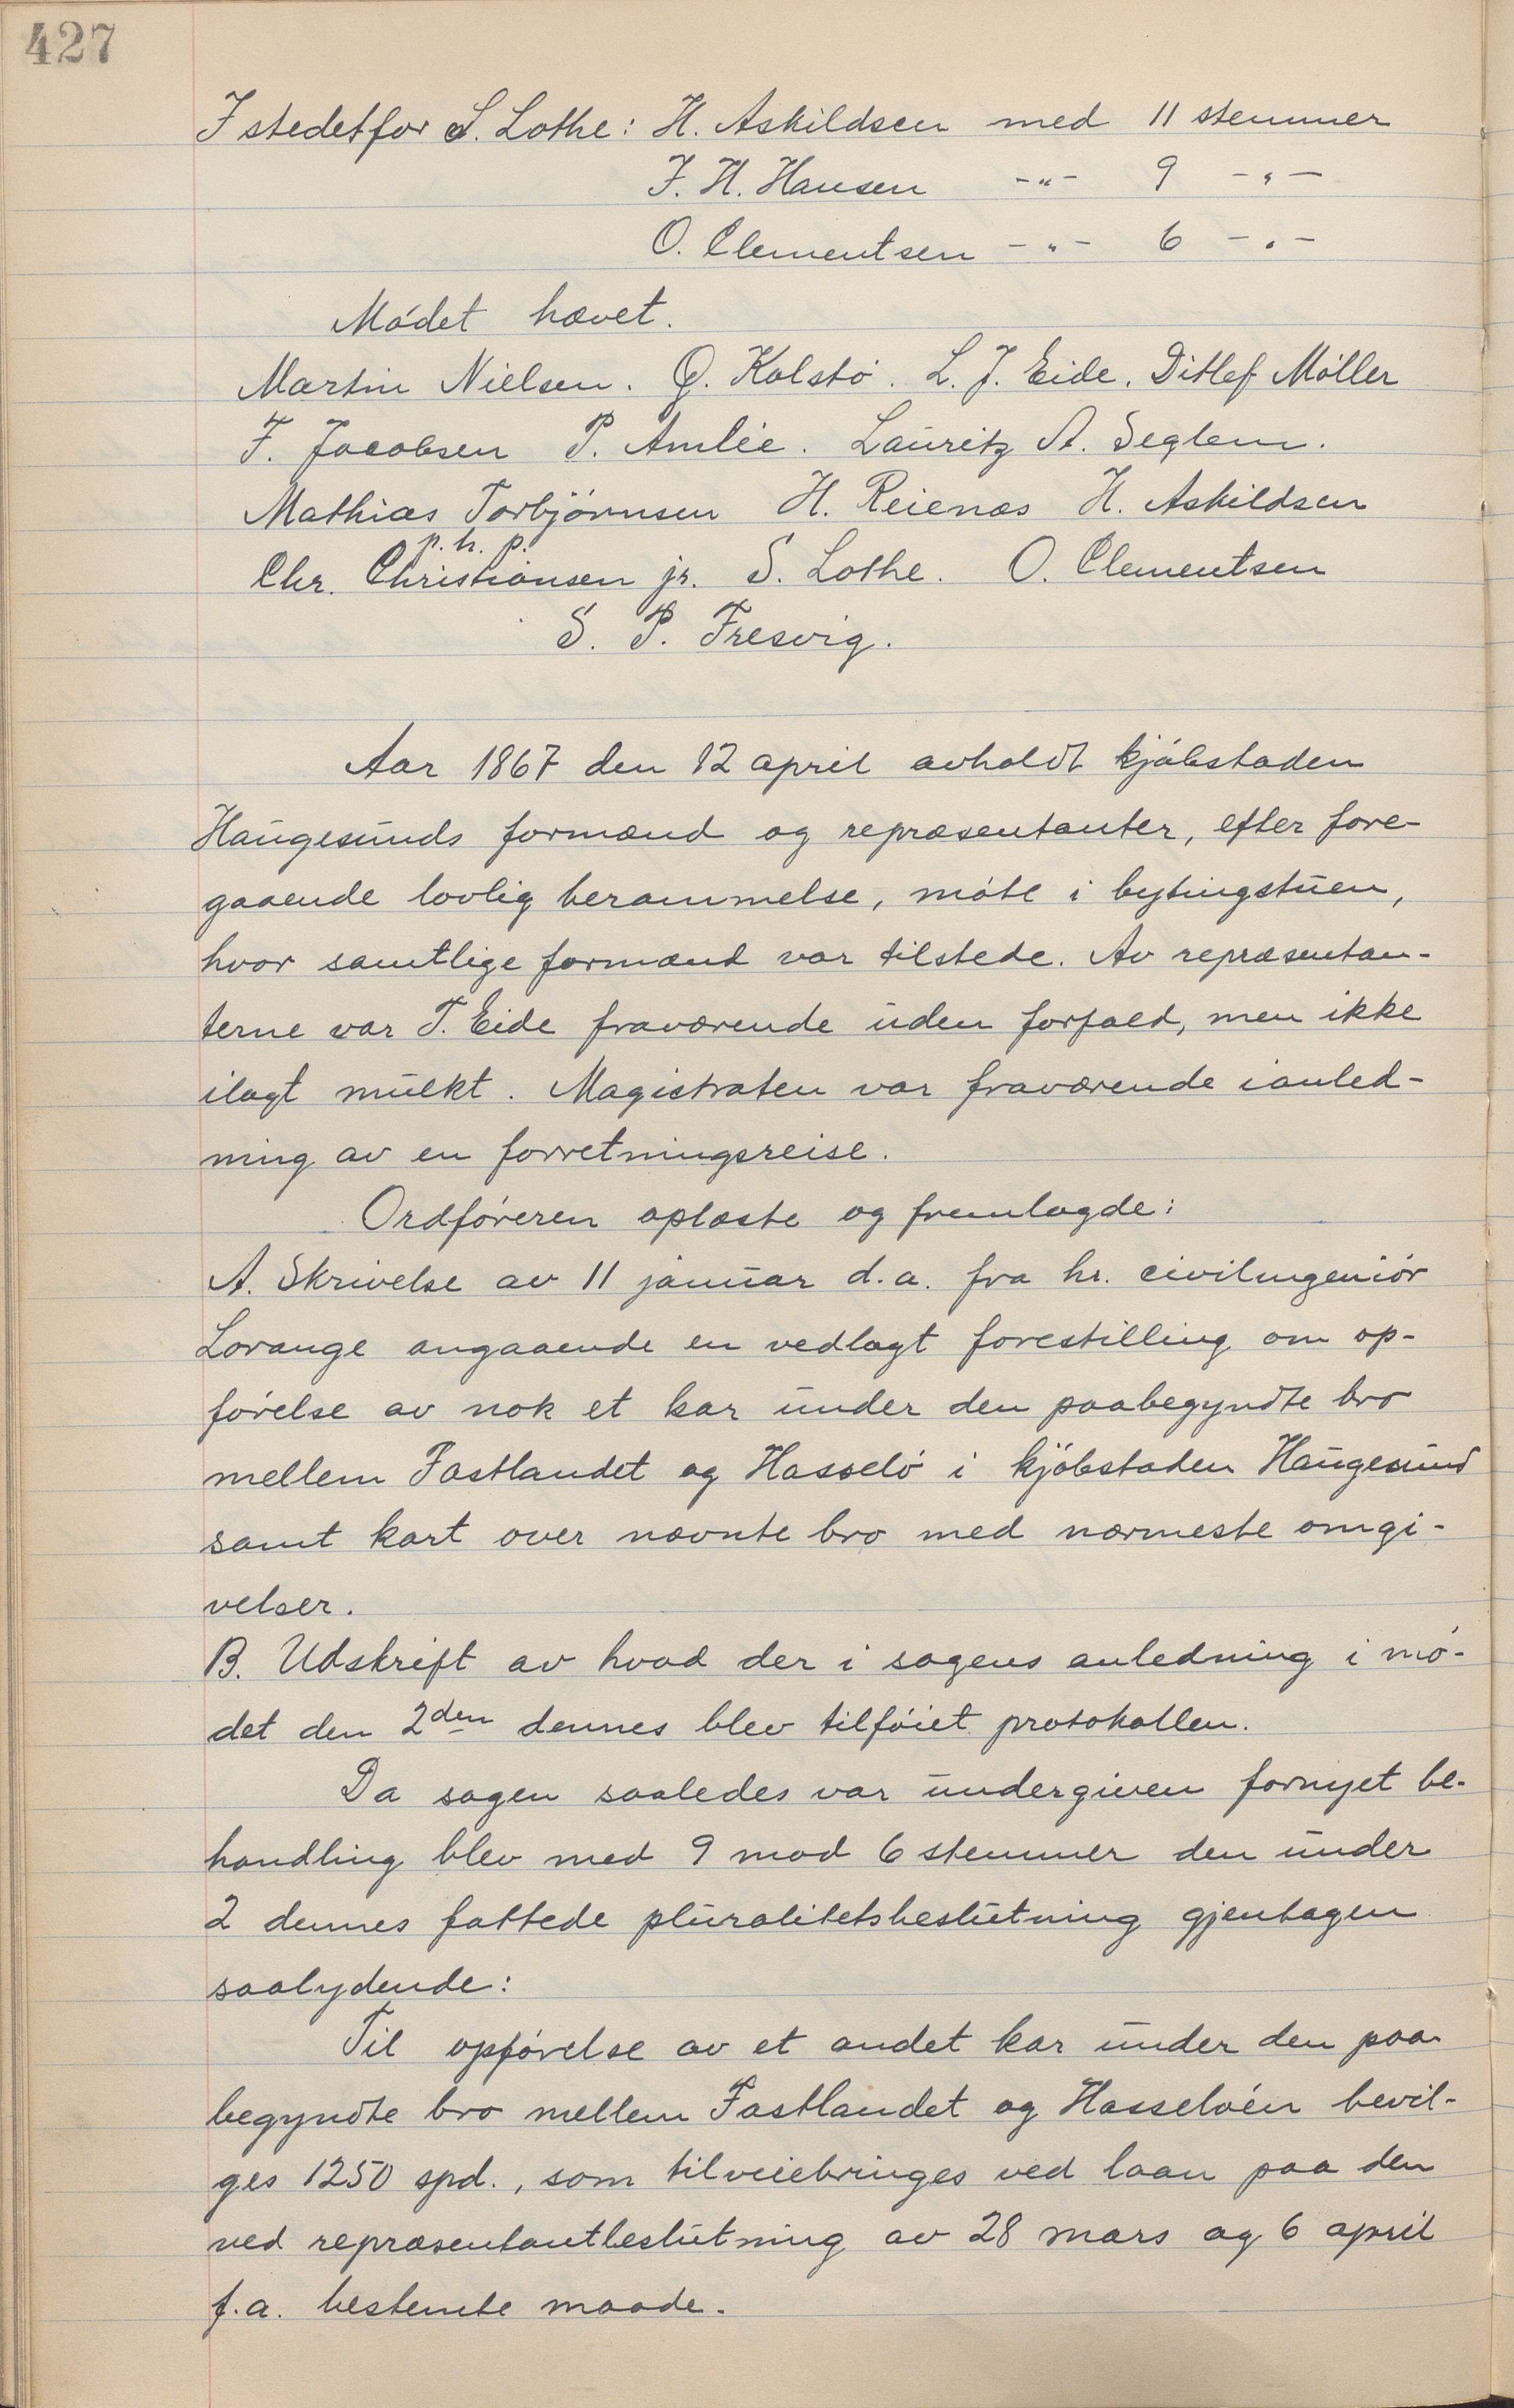 427
I stedetfor S. Lothe: H. Askildsen med 11 stemmer
J. H. Hansen -"- 9 -"-
O. Clementsen -"- 6 -"-
Mødet hævet.
Martin Nielsen. Q. Kolstø. L. J. Eide. Ditlef Møller
F. Jacobsen P. Amlie. Lauritz A. Seglem.
Mathias Torbjørnsen H. Reienæs H. Askildsen
p. h. p.
Chr. Christiansen jr. S. Lothe. O. Clementsen
S. P. Fresvig.
Aar 1867 den 12 april avholdt kjøbstaden
Haugesunds formænd og repræsentanter, efter fore-
gaaende lovlig berammelse, møte i bytingstuen,
hvor samtlige formænd var tilstede. Av repræsentan-
terne var T. Eide fraværende uden forfald, men ikke
ilagt mulkt. Magistraten var fraværende ianled-
ning av en forretningsreise.
Ordføreren oplæste og fremlagde:
A. Skrivelse av 11 januar d.a. fra hr. civilingeniør
Lorange angaaende en vedlagt forestilling om op-
førelse av nok et kar under den paabegyndte bro
mellem Fastlandet og Hasselø i kjøbstaden Haugesund
samt kart over nævnte bro med nærmeste omgi-
velser.
B. Udskrift av hvad der i sagens anledning i mø-
det den 2den dennes blev tilføiet protokollen.
Da sagen saaledes var undergiven fornyet be-
handling blev med 9 mod 6 stemmer den under
2 dennes fattede pluralitetsbeslutning gjentagen
saalydende:
Til opførelse av et andet kar under den paa-
begyndte bro mellem Fastlandet og Hasseløen bevil-
ges 1250 spd., som tilveiebringes ved laan paa den
ved repræsentantbeslutning av 28 mars og 6 april
f.a. bestemte maade.